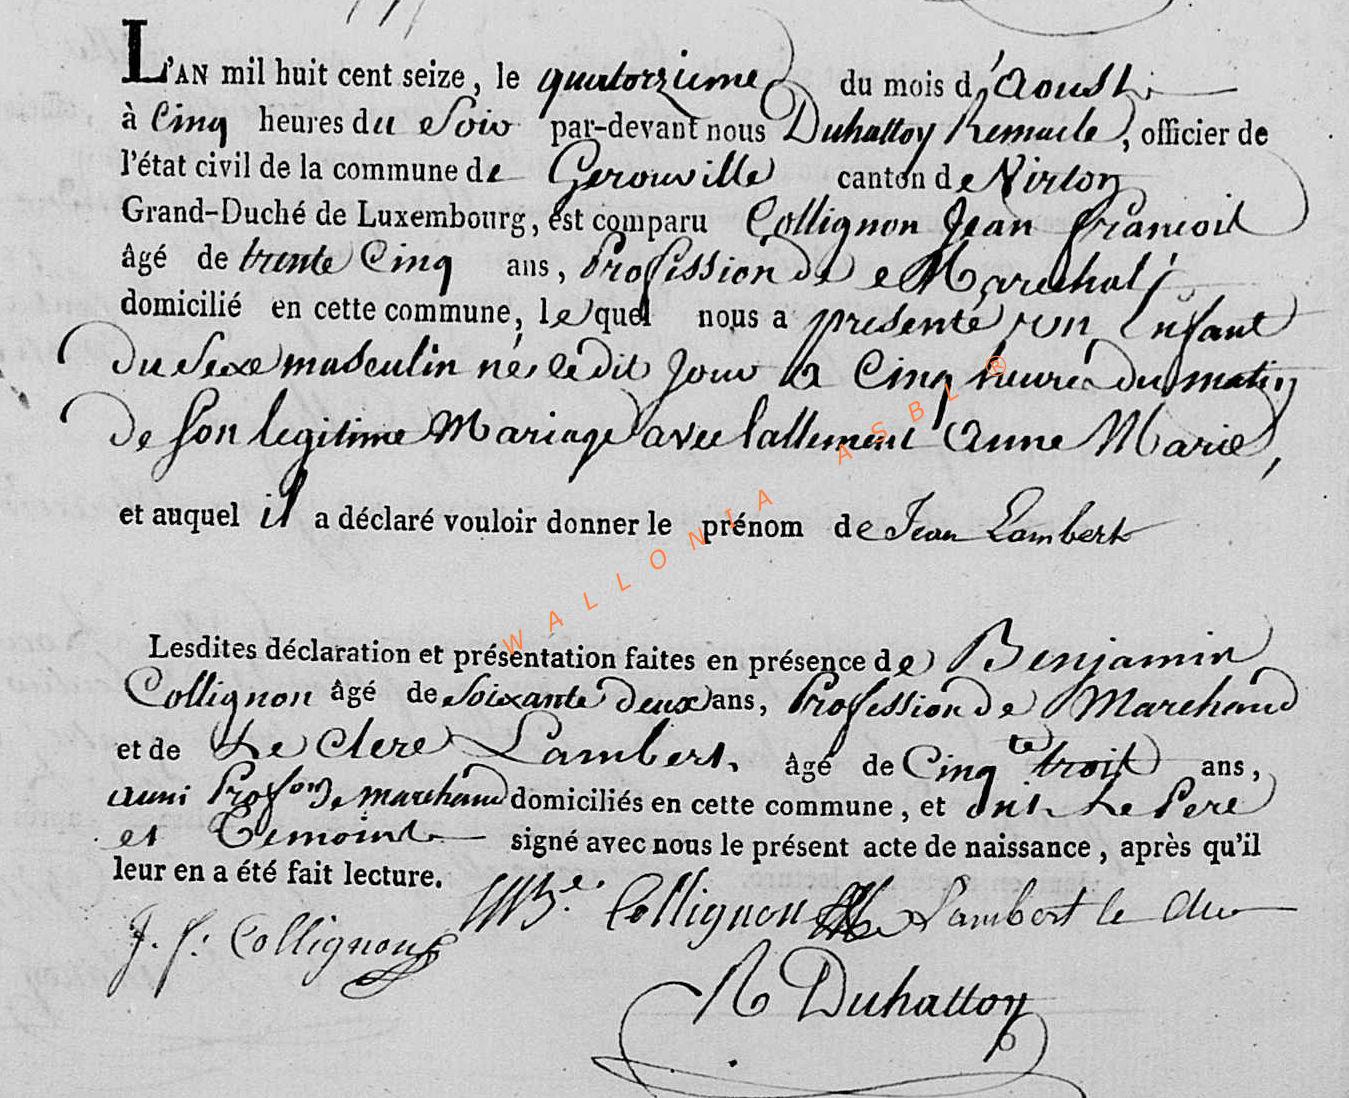 L'AN mil huit cent seize, le quatorzieme du mois d'Aoust
à Cinq heures du Soir par-devant nous Duhattoy Remacle, officier de
l'état civil de la commune de Gerouville canton de Virton
Grand-Duché de Luxembourg, est comparu Collignon Jean francois
âgé de trente Cinq ans, Profession de Marechal
domicilié en cette commune, lequel nous a presenté un Enfant
du Sexe masculin né le dit Jour a Cinq heures du matin
de son legitime Mariage avec lallement Anne Marie,
et auquel il a déclaré vouloir donner le prénom de Jean Lambert
Lesdites déclaration et présentation faites en présence de Benjamin
Collignon âgé de soixante deux ans, Profession de Marchand
et de Le Clere Lambert, âgé de Cinqte trois ans,
aussi Profon de marchand domiciliés en cette commune, et ont Le Pere
et Temoins signé avec nous le présent acte de naissance, après qu'il
leur en a été fait lecture.
J. f. Collignon Collignon Lambert le
R Duhattoy
WALLONIA ASBL ®